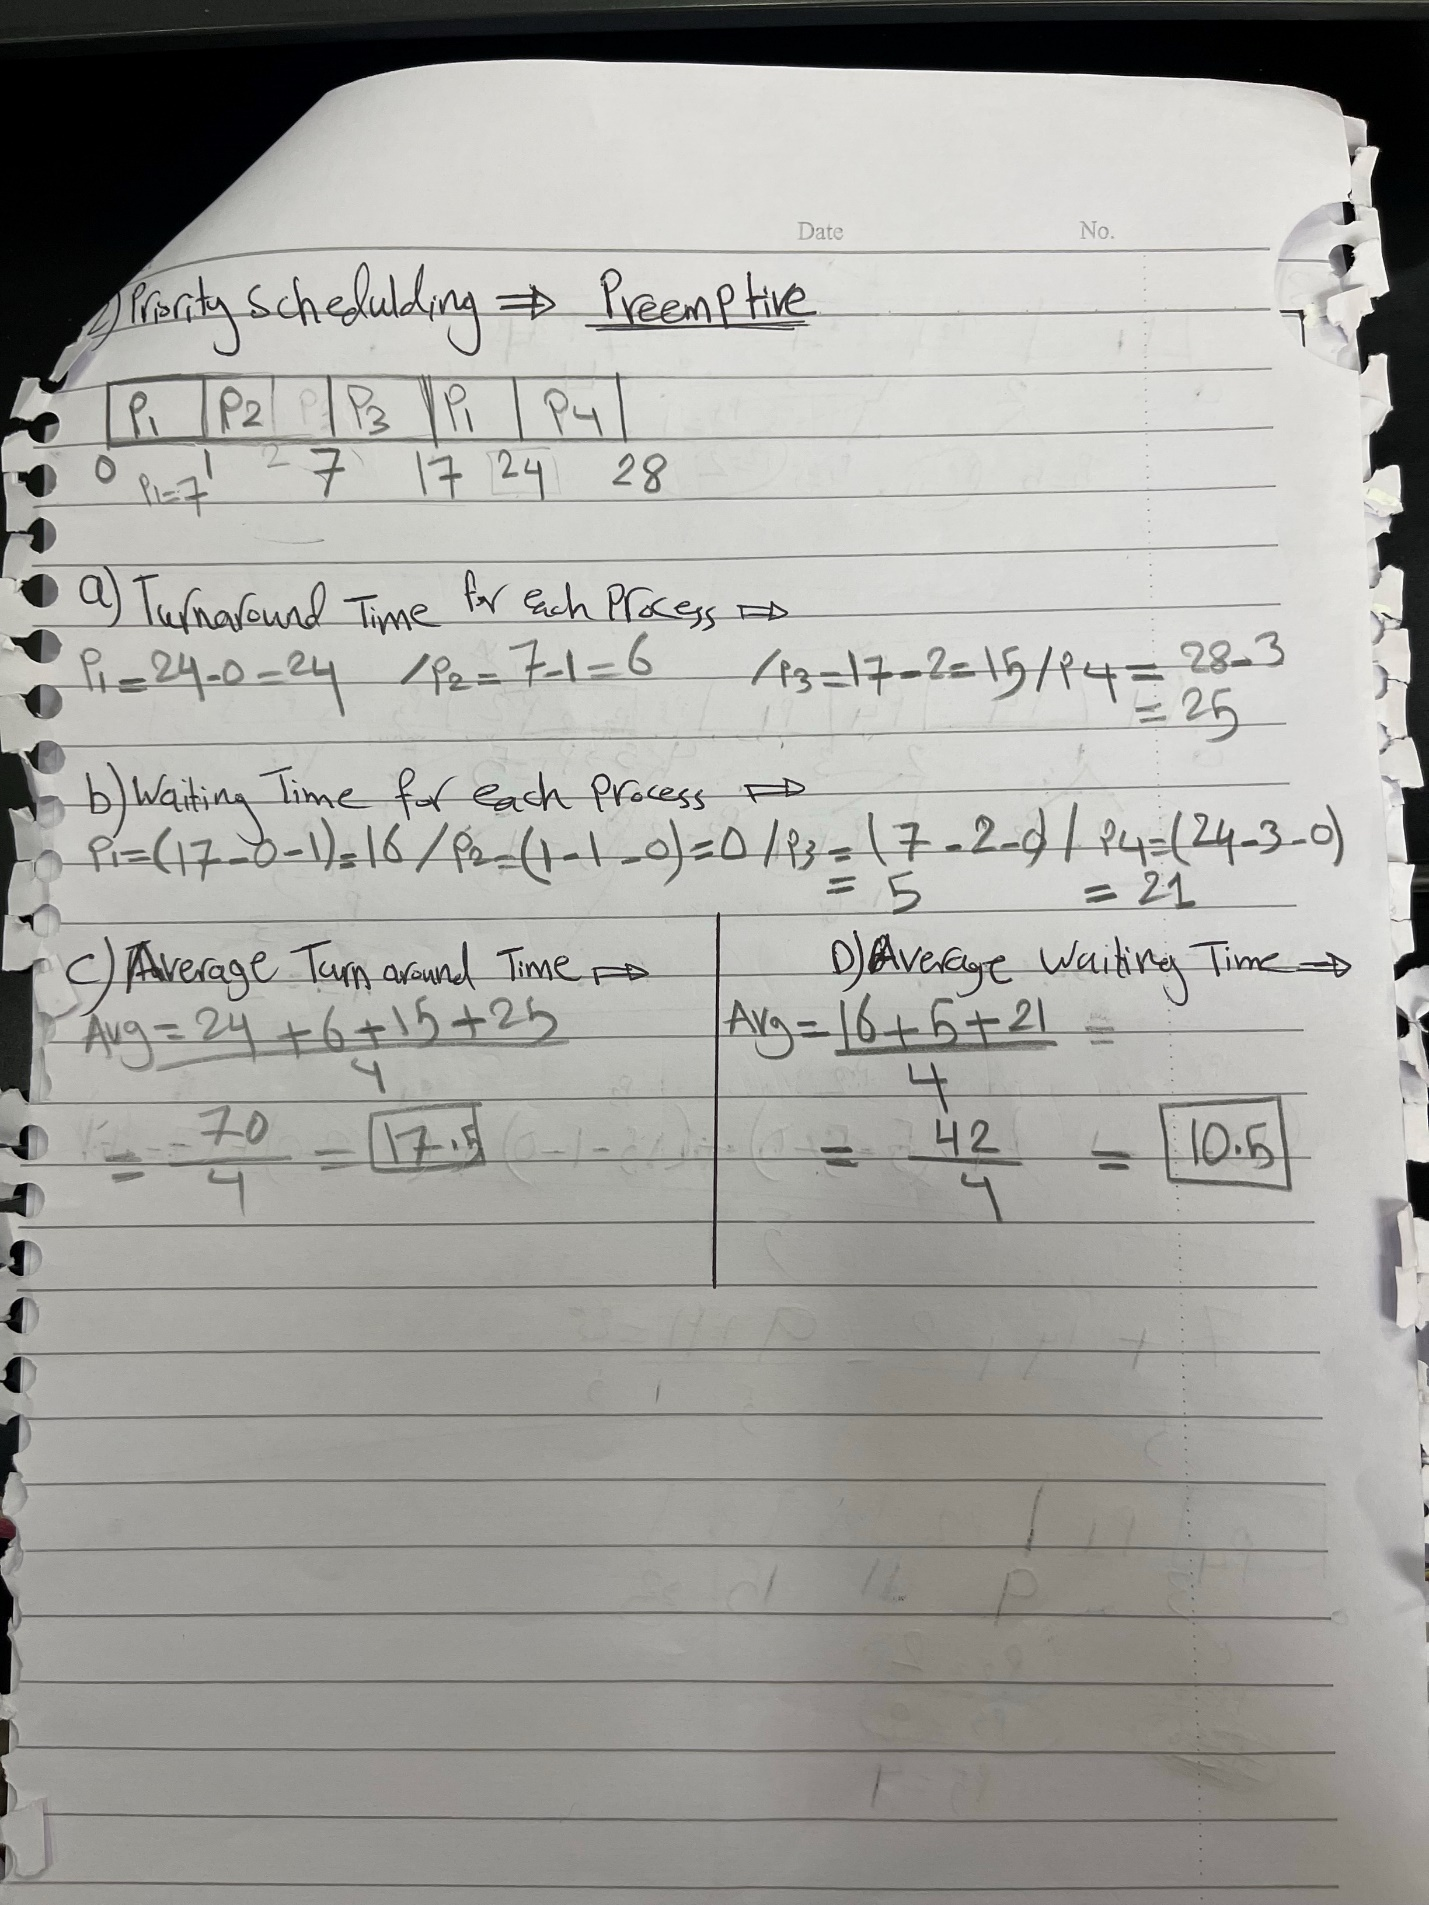 Date No.
2) Priority Schedulding ⇒ Preemptive
P1 P2 P3 P1 P4
0 1 2 7 17 24 28
P1=7
a) Turnaround Time for each Process ⇒
P1 = 24-0 = 24 / P2 = 7-1 = 6 / P3 = 17-2 = 15 / P4 = 28-3
= 25
b) Waiting Time for each process ⇒
P1=(17-0-1)=16 / P2=(1-1-0)=0 / P3 = (7-2-0) / P4=(24-3-0)
= 5 = 21
C) Average Turn around Time ⇒
Avg = 24 + 6 + 15 + 25
4
= 70 = 17.5
4
D) Average Waiting Time ⇒
Avg = 16 + 5 + 21 =
4
= 42 = 10.5
4